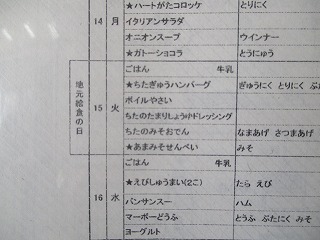 ★ハートがたコロッケ とりにく
14 月 イタリアンサラダ
オニオンスープ ウインナー
★ガトーショコラ とうにゅう
ごはん 牛乳
★ちたぎゅうハンバーグ ぎゅうにく とりにく
ボイルやさい
地元給食の日
15 火 ちたのたまりしょうゆドレッシング
ちたのみそおでん なまあげ さつまあげ
★あまみそせんべい みそ
ごはん 牛乳
★えびしゅうまい(2こ) たら えび
16 水 バンサンスー ハム
マーボーどうふ とうふ ぶたにく みそ
ヨーグルト